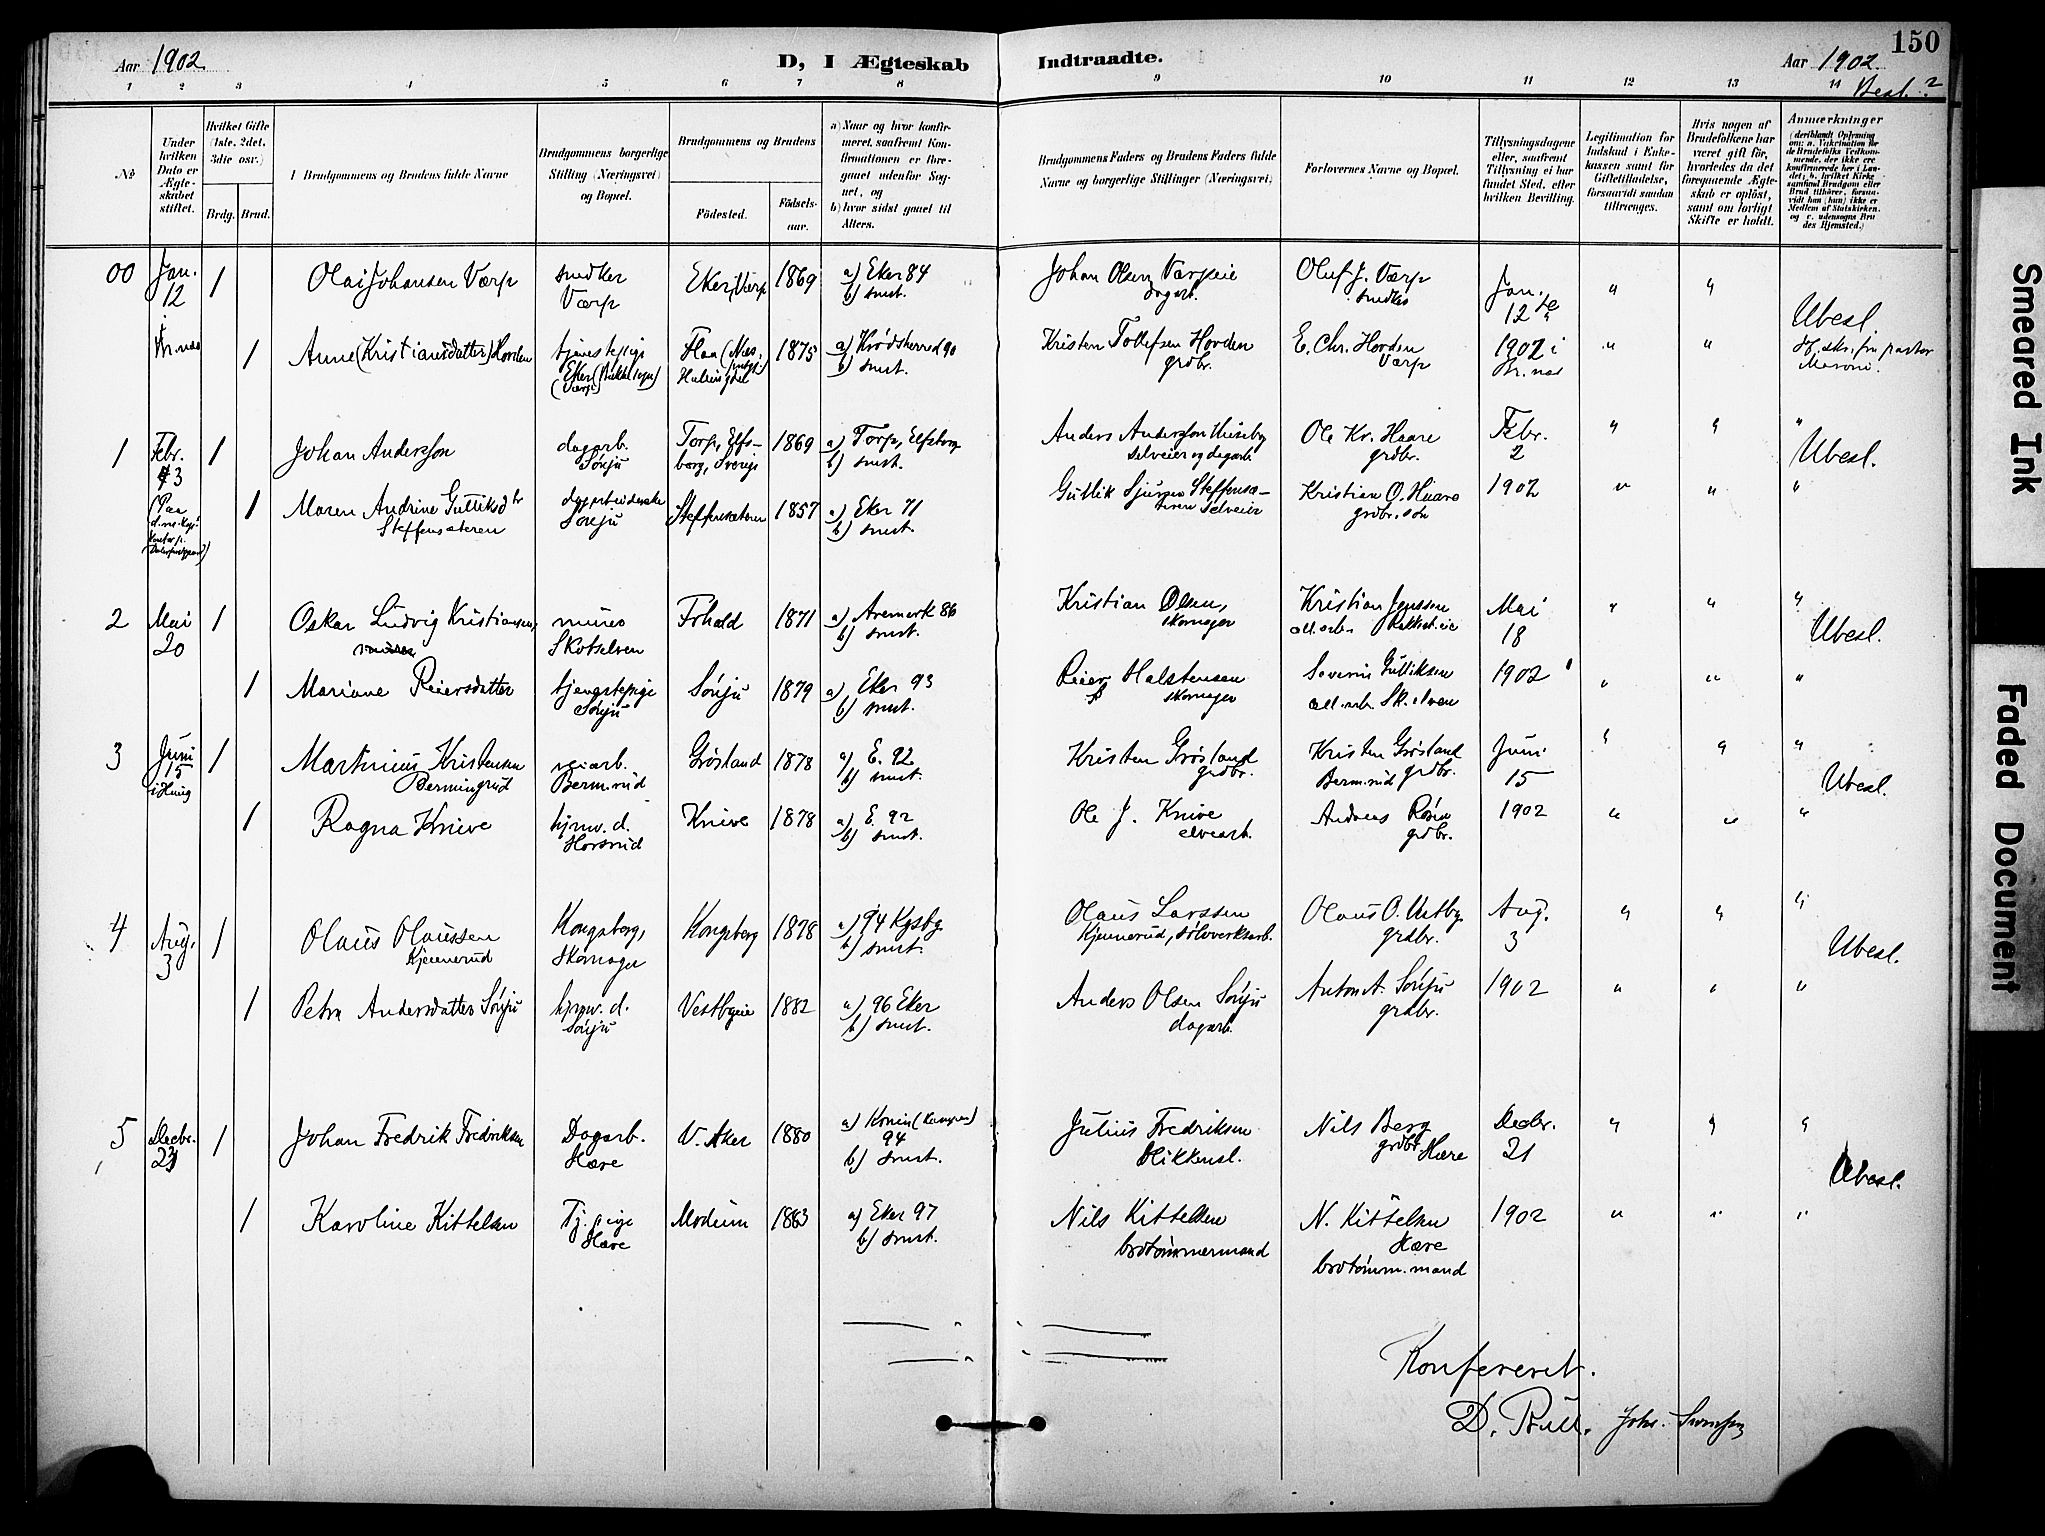 150
Aar 1902.
D, I Ægteskab Indtraadte.
Aar 1902.
Besl.?
1 2 3 4 5 6 7 8 9 10 11 12 13 14
No
Under hvilken Dato er Ægteskabet stiftet.
Hvilket Gifte (1ste, 2det, 3die osv.)
Brdg. Brud.
Brudgommens og Brudens fulde Navne
Brudgommens borgerlige Stilling (Næringsvei) og Bopæl.
Brudgommens og Brudens
Födested.
Födselsaar.
a) Naar og hvor konfirmeret, saafremt Konfirmationen er foregaaet udenfor Sognet, og
b) hvor sidst gaaet til Alters.
Brudgommens Faders og Brudens Faders fulde Navne og borgerlige Stillinger (Næringsvei)
Forlovernes Navne og Bopæl.
Tillysningsdagene eller, saafremt Tillysning ei har fundet Sted, efter hvilken Bevilling.
Legitimation for Indskud i Enkekassen samt for Giftetilladelse, forsaavidt saadan tiltrænges.
Hvis nogen af Brudefolkene har været gift för, hvorledes da det foregaaende Ægteskab er oplöst, samt om lovligt Skifte er holdt.
Anmærkninger
00 Jan. 12 1 Olai Johansen Værp snedker Værp Eker, Værp 1869 a) Eker 84 b) smst. Johan Olsen Værpeie dagarb. Oluf J. Værp snedker Jan. 12 " " Ubesl.
1 Anne (Kristiansdatter) Horden tjenestepige Eker Flaa (Næs, Hallingdal 1875 a) Krødsherred 90 b) smst. Kristen Tollefsen Hovden grdbr. E. Chr. Hovden Værp 1902 i " "
1 Febr. 3 1 Johan Andersson dagarb. Sønju Torp, Elfsborg, Sverige 1869 a) Torp, Elfsborg b) smst. Anders Andersson Huseby selveier og dagarb. Ole Kr. Haare grdbr. Febr. 2 " " " Ubesl.
1 Maren Andrine Gulliksdtr Steffensæteren dagarbeiderske Sønju Steffensæteren 1857 a) Eker 71 b) smst. Gullik Sjursen Steffensæteren Selveier Kristian O. Haare grdbr. søn 1902 " " "
2 Mai 20 1 Oskar Ludvig Kristiansen, murer Skotselven Frhald 1871 a) Aremark 86 b) smst. Kristian Olsen, skomager Kristian Jenssen Mai 18 " " " Ubesl.
1 Mariane Reiersdatter tjenestepige Sønju Sønju 1879 a) Eker 93 b) smst. Reier Halstensen skomager Severin Gulliksen 1902 " " "
3 Juni 15 1 Martinius Kristensen Bermingrud veiarb. Berm.rud Grøsland 1878 a) E. 92 b) smst. Kristen Grøsland grdbr. Kristen Grøsland Berm.rud grdbr. Juni 15 " " " Ubesl.
1 Ragna Knive hjmv. d. Horsrud Knive 1878 a) E. 92 b) smst. Ole J. Knive elvearb. Andreas grdbr. 1902 " " "
4 Aug. 3 1 Olaus Olaussen Hjennerud Kongsberg, Skomager Kongsberg 1878 a) 94 Kgsbg b) smst. Olaus Larssen Hjennerud, sølvverksarb. Olaus O. Vestby grdbr. Aug. 3 " " " Ubesl.
1 Petra Andersdatter Sønju hjmv. d. Sønju Vestbyeie 1882 a) 96 Eker b) smst. Anders Olsen Sønju dagarb. Anton A. Sønju grdbr. 1902 " " "
5 Decbr. 21 1 Johan Fredrik Fredriksen Dagarb. Hære V. Aker 1880 a) 94 b) smst. Julius Fredriksen Nils Berg grdbr. Hære Decbr. 21 " " " Ubesl.
1 Karoline Kittelsen Tj. pige Hære Modum 1863 a) Eker 97 b) smst. Nils Kittelsen brotømmermand N. Kittelsen Hære brotømm.mand 1902 " " "
Konfereret.
D. Bull. Johs. Svensen
Smeared Ink
Faded Document